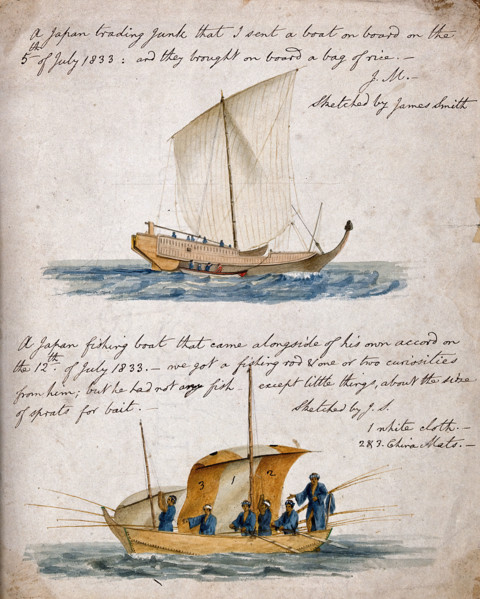 A Japan trading Junk that I sent a boat on board on the
5th of July 1833: and they brought on board a bag of rice. —
J. M. —
Sketched by James Smith
A Japan fishing boat that came alongside of his own accord on
the 12th. of July 1833. — we got a fishing rod & one or two curiosities
from him; but he had not any fish except little things, about the size
of sprats for bait. —
Sketched by J. S.
1 white cloth. —
2 & 3. China Mats. —
3 1 2